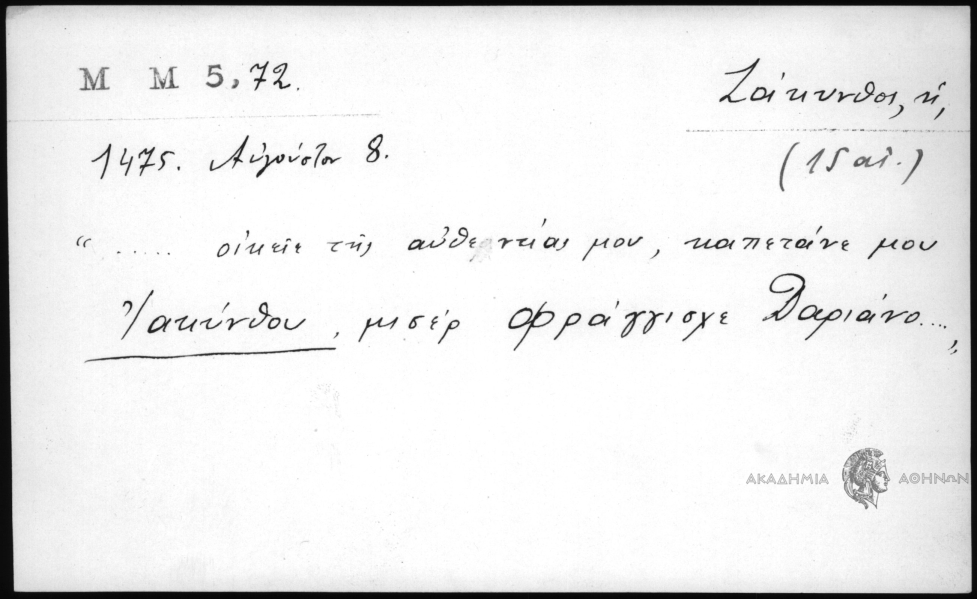 M M 5,72.
Ζάκυνθος, ἡ,
1475. Αὐγούστου 8.
(15 αἰ.)
“ ..... οἰκεῖε τῆς αὐθεντίας μου, καπετάνε μου
Ὑακύνθου, μισέρ Φράγγισχε Δαριάνο...„
ΑΚΑΔΗΜΙΑ ΑΘΗΝΩΝ